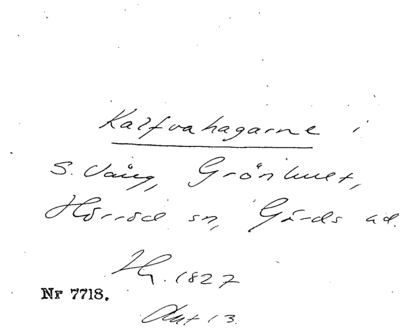 Kalfvahagarne i
S. Vång, Grönhult,
Hörröd sn, Gärds hd.
Hy. 1827
Nr 7718.
Akt 13.